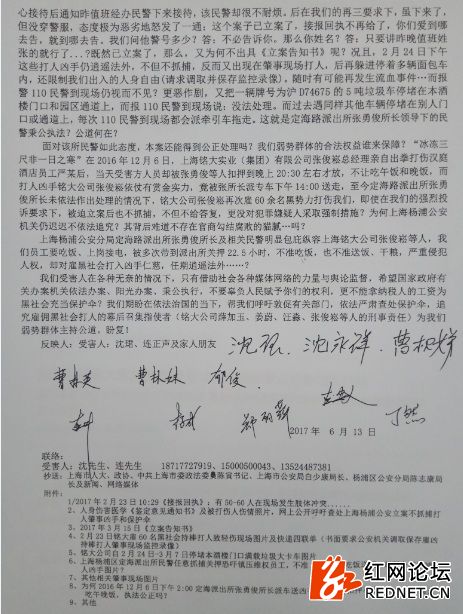 心接待后通知昨值班经办民警下来接待,该民警却很不耐烦。后在我们的再三要求下,虽下来了,
但没穿警服,态度极为恶劣地怒发了一通:这个案子已立案了,接报回执不再给了,你们爱到哪
去告,就到哪去告。我们问他警号多少?答:不必告诉你。那么你姓名?答:只要讲昨晚值班姓
张的就行了,..?既然已立案了。那么,又为何不出具《立案告知书》呢?况且,2月24日下午
这些打人凶手仍逍遥法外,不但不抓捕,反而又出现在肇事现场打人,后再躲进停着多辆面包车
内,还限制我们出入的人身自由(请求调取并保存监控录像),随时有可能再发生流血事件…而报
警110民警到现场仍视而不见?更恶作剧,又把一辆牌号为沪D74675的5吨垃圾车停堵在本酒
楼门口和园区通道上,而报110民警到现场说:没法处理。而过去遇同样其他车辆停堵在别人门
口或通道上,每次110民警到现场都会派牵引车拖走。这就是定海路派出所张勇俊所长领导下的民
警秉公执法?公道何在?
面对该所民警如此态度,本案还能得到公正处理吗?我们弱势群体的合法权益谁来保障?“冰冻三
尺非一日之寒”在2016年12月6日,上海铭大实业(集团)有限公司张俊崧总经理亲自出拳打伤汉庭
酒店员工严某后,当天受害方人员却被张勇俊等人扣押到晚上20:30左右才放,不让吃午饭和晚饭,而
打人凶手铭大公司张俊崧依仗有赏金实力,竟被张所长派专车下午14:00送走,至今定海路派出所张勇
俊所长未依法作出处理的情况下,铭大公司张俊崧再次雇60余名黑势力打伤我们,即使在我们的强烈投
诉要求下,被迫立案后也不抓捕,不但不给答复,更没对犯罪嫌疑人采取强制措施?为何上海杨浦公安
机关仍迟迟不依法追究?其背后难道不存在官商勾结腐败的猫腻…吗?
上海杨浦公安分局定海路派出所张勇俊所长及相关民警明显包庇纵容上海铭大公司张俊崧等人,我
们员工要吃饭、上岗接电,被多次带到派出所关押22.5小时,不准吃饭,也不准送饭、干粮,严重侵犯
人权,却对雇黑社会打人凶手仁慈,任期逍遥法外…?
我们受害人在各种无奈的情况下,只有借助社会各种媒体网络的力量与舆论监督,希望国家政府有
关办案机关依法办案、阳光办案,秉公执行,不要辜负人民赋予你们的权利,更不能拿纳税人的工资为
黑社会充当保护伞?我们期盼在依法治国的当下,帮我们呼吁敦促有关部门,依法严肃查处保护伞,追
究雇佣黑社会打人的幕后召集指使者(铭大公司薛加玉、姜蔚、江淼、张俊崧等人的刑事责任)为我们
弱势群体主持公道,盼复!
反映人:受害人:沈珺、连正声及家人朋友
沈永祥
曹林妹
郁俊
丁然
2017 年 6 月 13 日
联络:
受害人:沈先生、连先生 18717727919、15000500043、13524487381
抄送:上海市人大、政协、中共上海市委政法委员陈寅书记、上海市公安局白少康局长、杨浦区公安分局陈志康局
长及新闻、网络媒体
附件:
1/2017年2月23日10:29《接报回执》;有50-60人在现场发生肢体冲突……
2、人身伤害医学《鉴定意见通知书》及被打伤人伤情照片,网上公开呼吁查处上海杨浦公安立案不抓捕打
人肇事凶手和保护伞
3、2017年3月15日《立案告知书》
4、2月23日铭大雇60名黑社会持棒打人致轻伤现场图片及快递四联单(书面要求公安机关调取保存雇凶
持棒打人肇事现场监控录像)
5、铭大公司自2月24日—3月7日停堵本酒楼门口满载垃圾大卡车图片
8、为何2016年12月6日下午2:00定海路派出所张勇俊所长派车送凶
吃午晚饭,执法公正吗?
9、其他
红网论坛
REDNET.CN